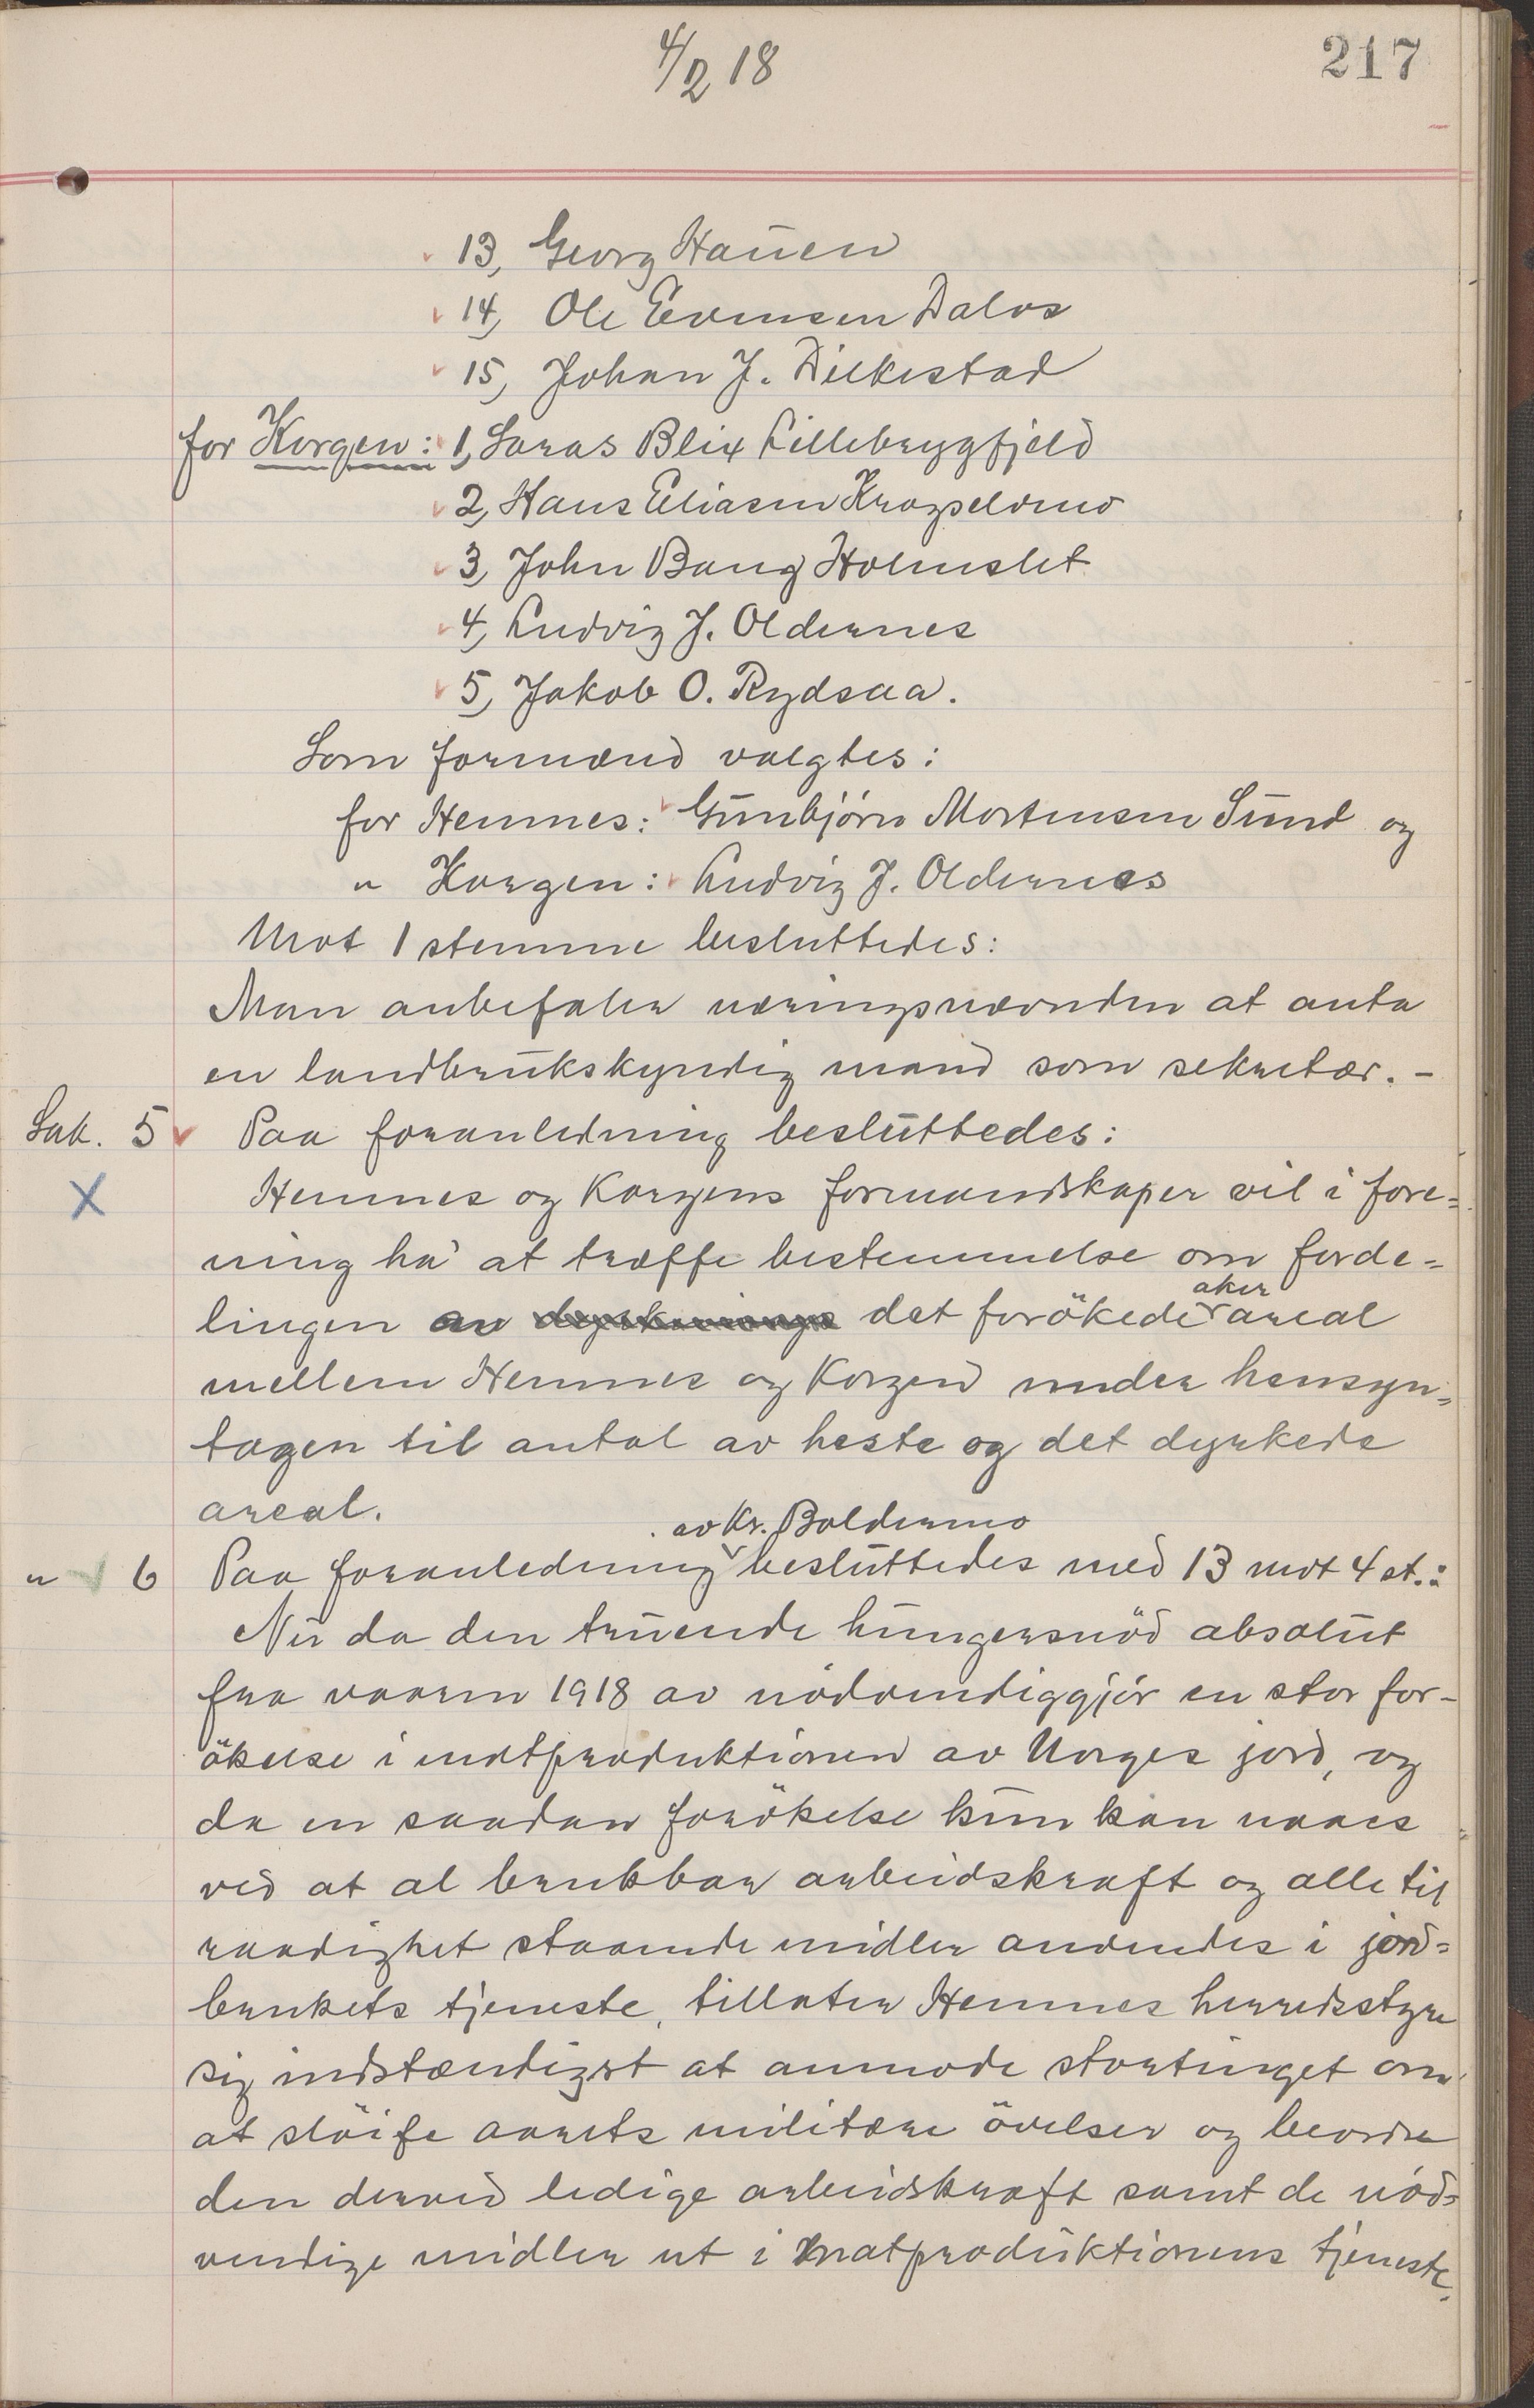 4/2 18
217
13, Georg Hauen
14, Ole Evensen Dalos
15, Johan J. Dilkestad
for Korgen: 1, Laras Blix Lillebrygfjeld
2, Hans Eliasen
3, John Bang Holmslet
4, Ludvig J. Oldernes
5, Jakob O. Rydsaa.
Som formænd valgtes:
for Hemnes: Gunbjörn Mortensen Sund og
" Korgen: Ludvig J. Oldernes
Mot 1 stemme besluttedes:
Man anbefaler næringsnævnden at anta
en landbrukskyndig mand som sekretær. -
Sak. 5 Paa foranledning besluttedes:
X
Hemnes og Korgens formandskaper vil i fore=
ning ha at træffe bestemmelse om forde=
lingen av det forökede aker areal
mellem Hemnes og Korgen under hensyn=
tagen til antal av heste og det dyrkede
areal.
" 6 Paa foranledning av Kr. Baldermo besluttedes med 13 mot 4 st.:
Nu da den truende hungersnöd absolut
fra vaaren 1918 av nödvendiggjör en stor for-
ökelse i matproduktionen av Norges jord, og
da en saadan forökelse kun kan naaes
ved at al brukbar arbeidskraft og alle til
raadighet staaende midler anvendes i jord=
brukets tjeneste, tillater Hemnes herredsstyre
sig indstændigst at anmode stortinget om
at slöife aarets militære övelser og beordre
den derved ledige arbeidskraft samt de nöd=
vendige midler ut i matproduktionens tjeneste.